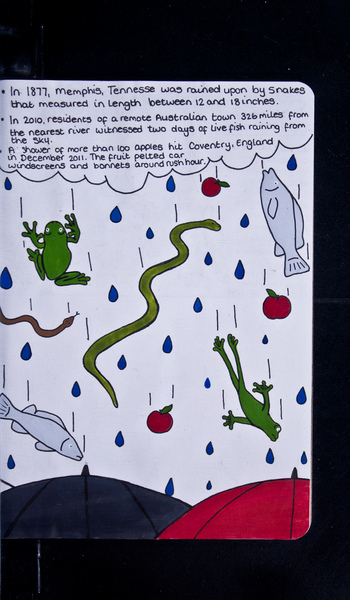 • In 1877, Memphis, Tennesse was rained upon by snakes
that measured in length between 12 and 18 inches.
• In 2010, residents of a remote Australian town 326 miles from
the nearest river witnessed two days of live fish raining from
the sky.
• A shower of more than 100 apples hit Coventry, England
in December 2011. The fruit pelted car
windscreens and bonnets around rush hour.